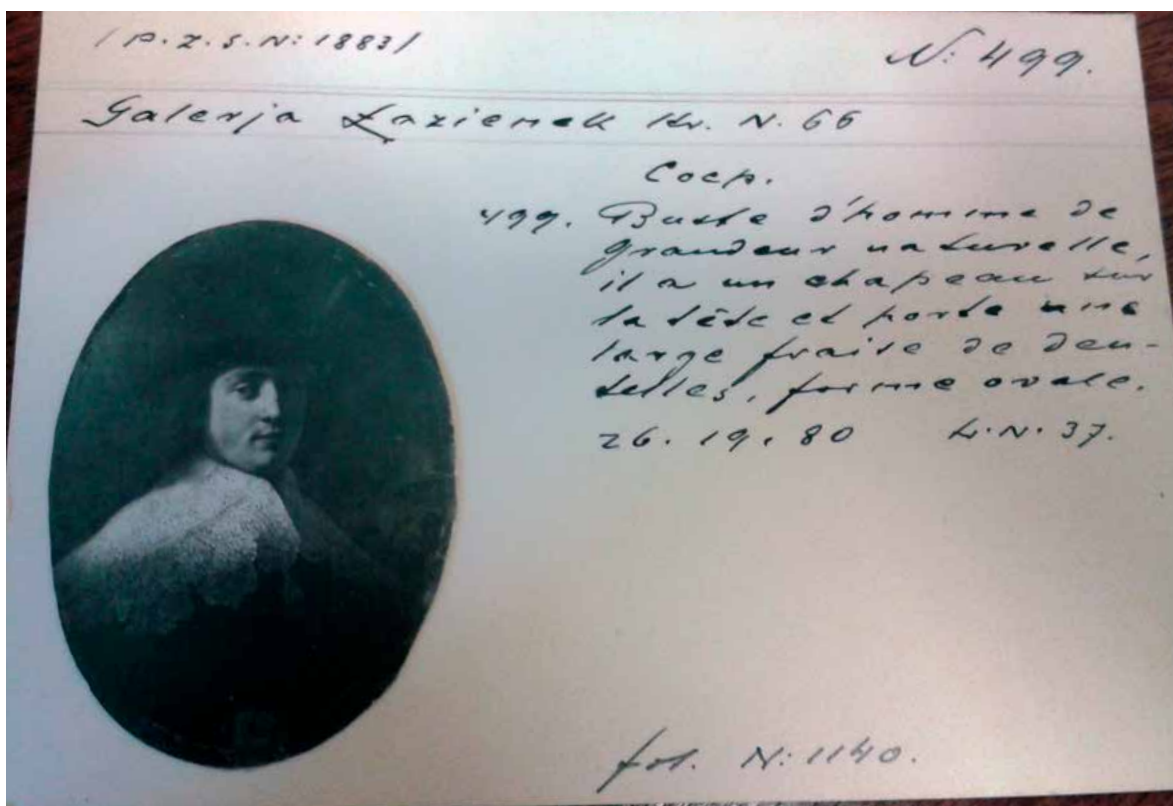 / P. Z. S. N: 1883 /
N: 499.
Galerja Łazienek Kr. N. 66
Coep.
499. Buste d'homme de
grandeur naturelle,
il a un chapeau sur
la tête et porte une
large fraise de den-
telles, forme ovale.
26. 19. 80 Ł. N. 37.
fot. N: 1140.